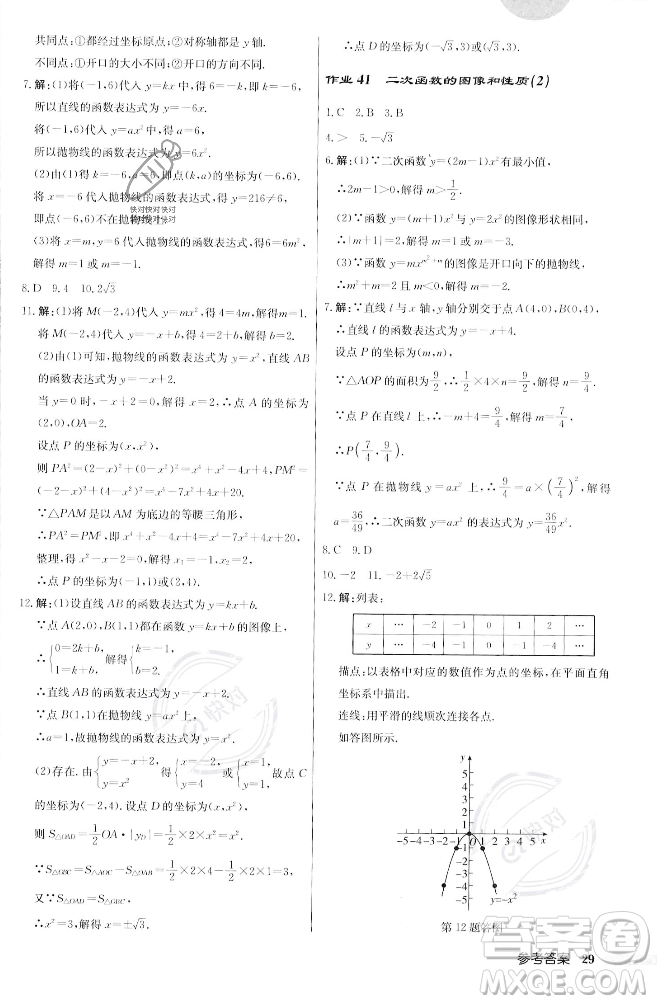 共同点:①都经过坐标原点;②对称轴都是 y 轴.
不同点:①开口的大小不同;②开口的方向不同.
7.解:(1)将(-1,6)代入 y=kx 中,得 k=-6,
所以直线的函数表达式为 y=-6x.
将(-1,6)代入 y=ax² 中,得 a=6,
所以抛物线的函数表达式为 y=6x².
(2)将 k=-6 代入
将 x=k=-6 代入抛物线的函数表达式,得 y=216≠6,
即点(-6,6)不在抛物线
(3)将 x=m,y=-6m 代入抛物线的函数表达式,得-6m=6m²,
解得 m=-1 或 m=0
8.D 9.4 10.2√3
11.解:(1)将 M(-2,4)代入 y=mx²,得 4=4m,解得 m=1.
将 M(-2,4)代入 y=-x+b,得 4=2+b,解得 b=2.
(2)由(1)可知,抛物线的函数表达式为 y=x²,直线 AB
的函数表达式为 y=-x+2.
当 y=0 时,-x+2=0,解得 x=2,∴点 A 的坐标为
(2,0),OA=2.
设点 P 的坐标为(x,x²),
则 PA²=(2-x)²+(0-x²)²=x⁴+x²-4x+4,PM²=
(-2-x)²+(4-x²)²=x⁴-7x²+4x+20.
∵△PAM 是以 AM 为底边的等腰三角形,
∴PA²=PM²,即 x⁴+x²-4x+4=x⁴-7x²+4x+20,
整理,得 x²-x-2=0,解得 x₁=-1,x₂=2.
∴点 P 的坐标为(-1,1)或(2,4).
12.解:(1)设直线 AB 的函数表达式为 y=kx+b.
∵点 A(2,0),B(1,1)都在函数 y=kx+b 的图像上,
∴{0=2k+b, 1=k+b, 解得{k=-1, b=2,
∴直线 AB 的函数表达式为 y=-x+2.
∵点 B(1,1)在抛物线的函数 y=ax² 的图像上,
∴a=1,故抛物线的函数表达式为 y=x².
(2)存在.由{y=-x+2, y=x², 解得{x=-2, y=4 或{x=1, y=1, 故点 C
的坐标为(-2,4).设点 D 的坐标为(x,x²),
则 S△OAD=1/2 OA·|y_D|=1/2×2×x²=x².
∵S△OBC=S△AOC-S△OAB=1/2×2×4-1/2×2×1=3,
又∵S△OAD=S△OBC,
∴x²=3,解得 x=±√3.
∴点 D 的坐标为(-√3,3)或(√3,3).
作业 41 二次函数的图像和性质(2)
1.C 2.B 3.B
4.> 5.-√3
6.解:(1)∵二次函数 y=(2m-1)x² 有最小值,
∴2m-1>0,解得 m>1/2.
(2)∵函数 y=(m+1)x² 与 y=2x² 的图像形状相同,
∴m+1=±2,解得 m=1 或 m=-3.
∴m²+m=2,解得 m=1 或 m=-2.
∵m<0,∴m=-2.
7.解:∵直线 l 与 x 轴,y 轴分别交于点 A(4,0),B(0,4),
∴直线 l 的函数表达式为 y=-x+4.
设点 P 的坐标为(m,n),
∵△AOP 的面积为9/2,∴1/2×4×n=9/2,解得 n=9/4.
∵点 P 在直线 l 上,∴-m+4=9/4,解得 m=7/4,
∴P(7/4,9/4).
∵点 P 在抛物线 y=ax² 上,∴9/4=a×(7/4)²,解得
a=36/49,∴二次函数的表达式为 y=36/49x².
8.C 9.D
10.-2 11.-2+2√5
12.解:列表:
x … -2 -1 0 1 2 …
y … -4 -1 0 -1 -4 …
描点:以表格中对应的数值作为点的坐标,在平面直角
坐标系中描出.
连线:用平滑的线顺次连接各点.
如答图所示.
y=-x²
第 12 题答图
参考答案 29
快对
答案圈
MXQE.COM